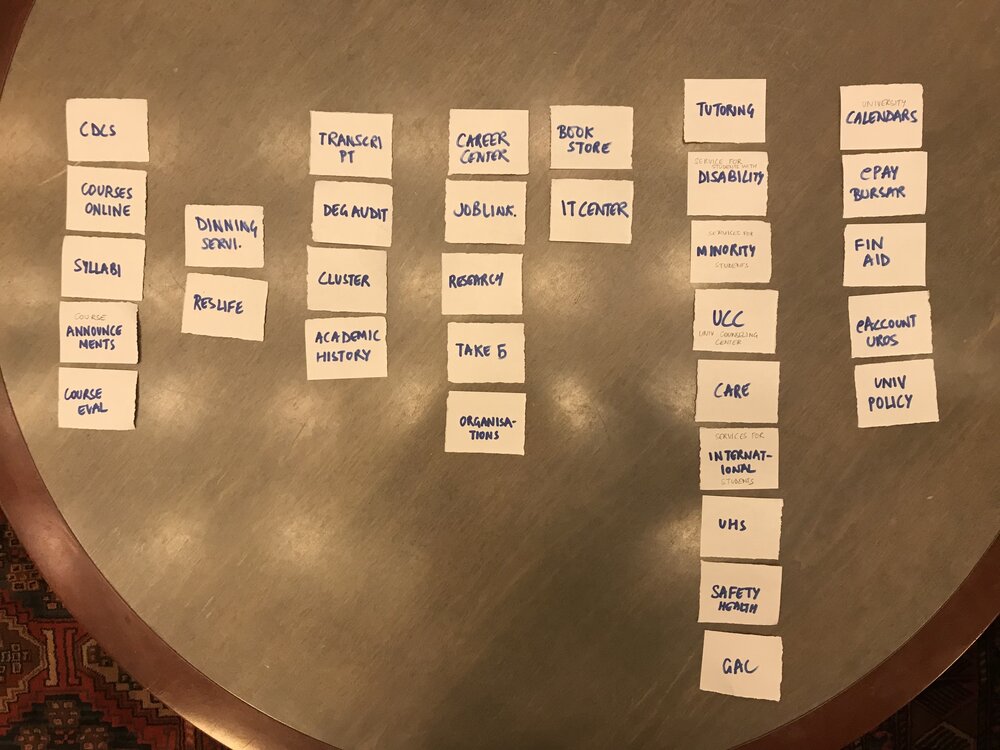 CDCS
COURSES
ONLINE
SYLLABI
COURSE
ANNOUNCE
MENTS
COURSE
EVAL
DINNING
SERVI.
RESLIFE
TRANSCRI
PT
DEG AUDIT
CLUSTER
ACADEMIC
HISTORY
CAREER
CENTER
JOBLINK.
RESEARCH
TAKE 5
ORGANISA-
TIONS
BOOK
STORE
IT CENTER
TUTORING
SERVICE FOR
STUDENTS WITH
DISABILITY
SERVICES FOR
MINORITY
STUDENTS
UCC
UNIV COUNSELING
CENTER
CARE
SERVICES FOR
INTERNAT-
IONAL
STUDENTS
UHS
SAFETY
HEALTH
GAC
UNIVERSITY
CALENDARS
ePAY
BURSAR
FIN
AID
eACCOUNT
UROS
UNIV
POLICY